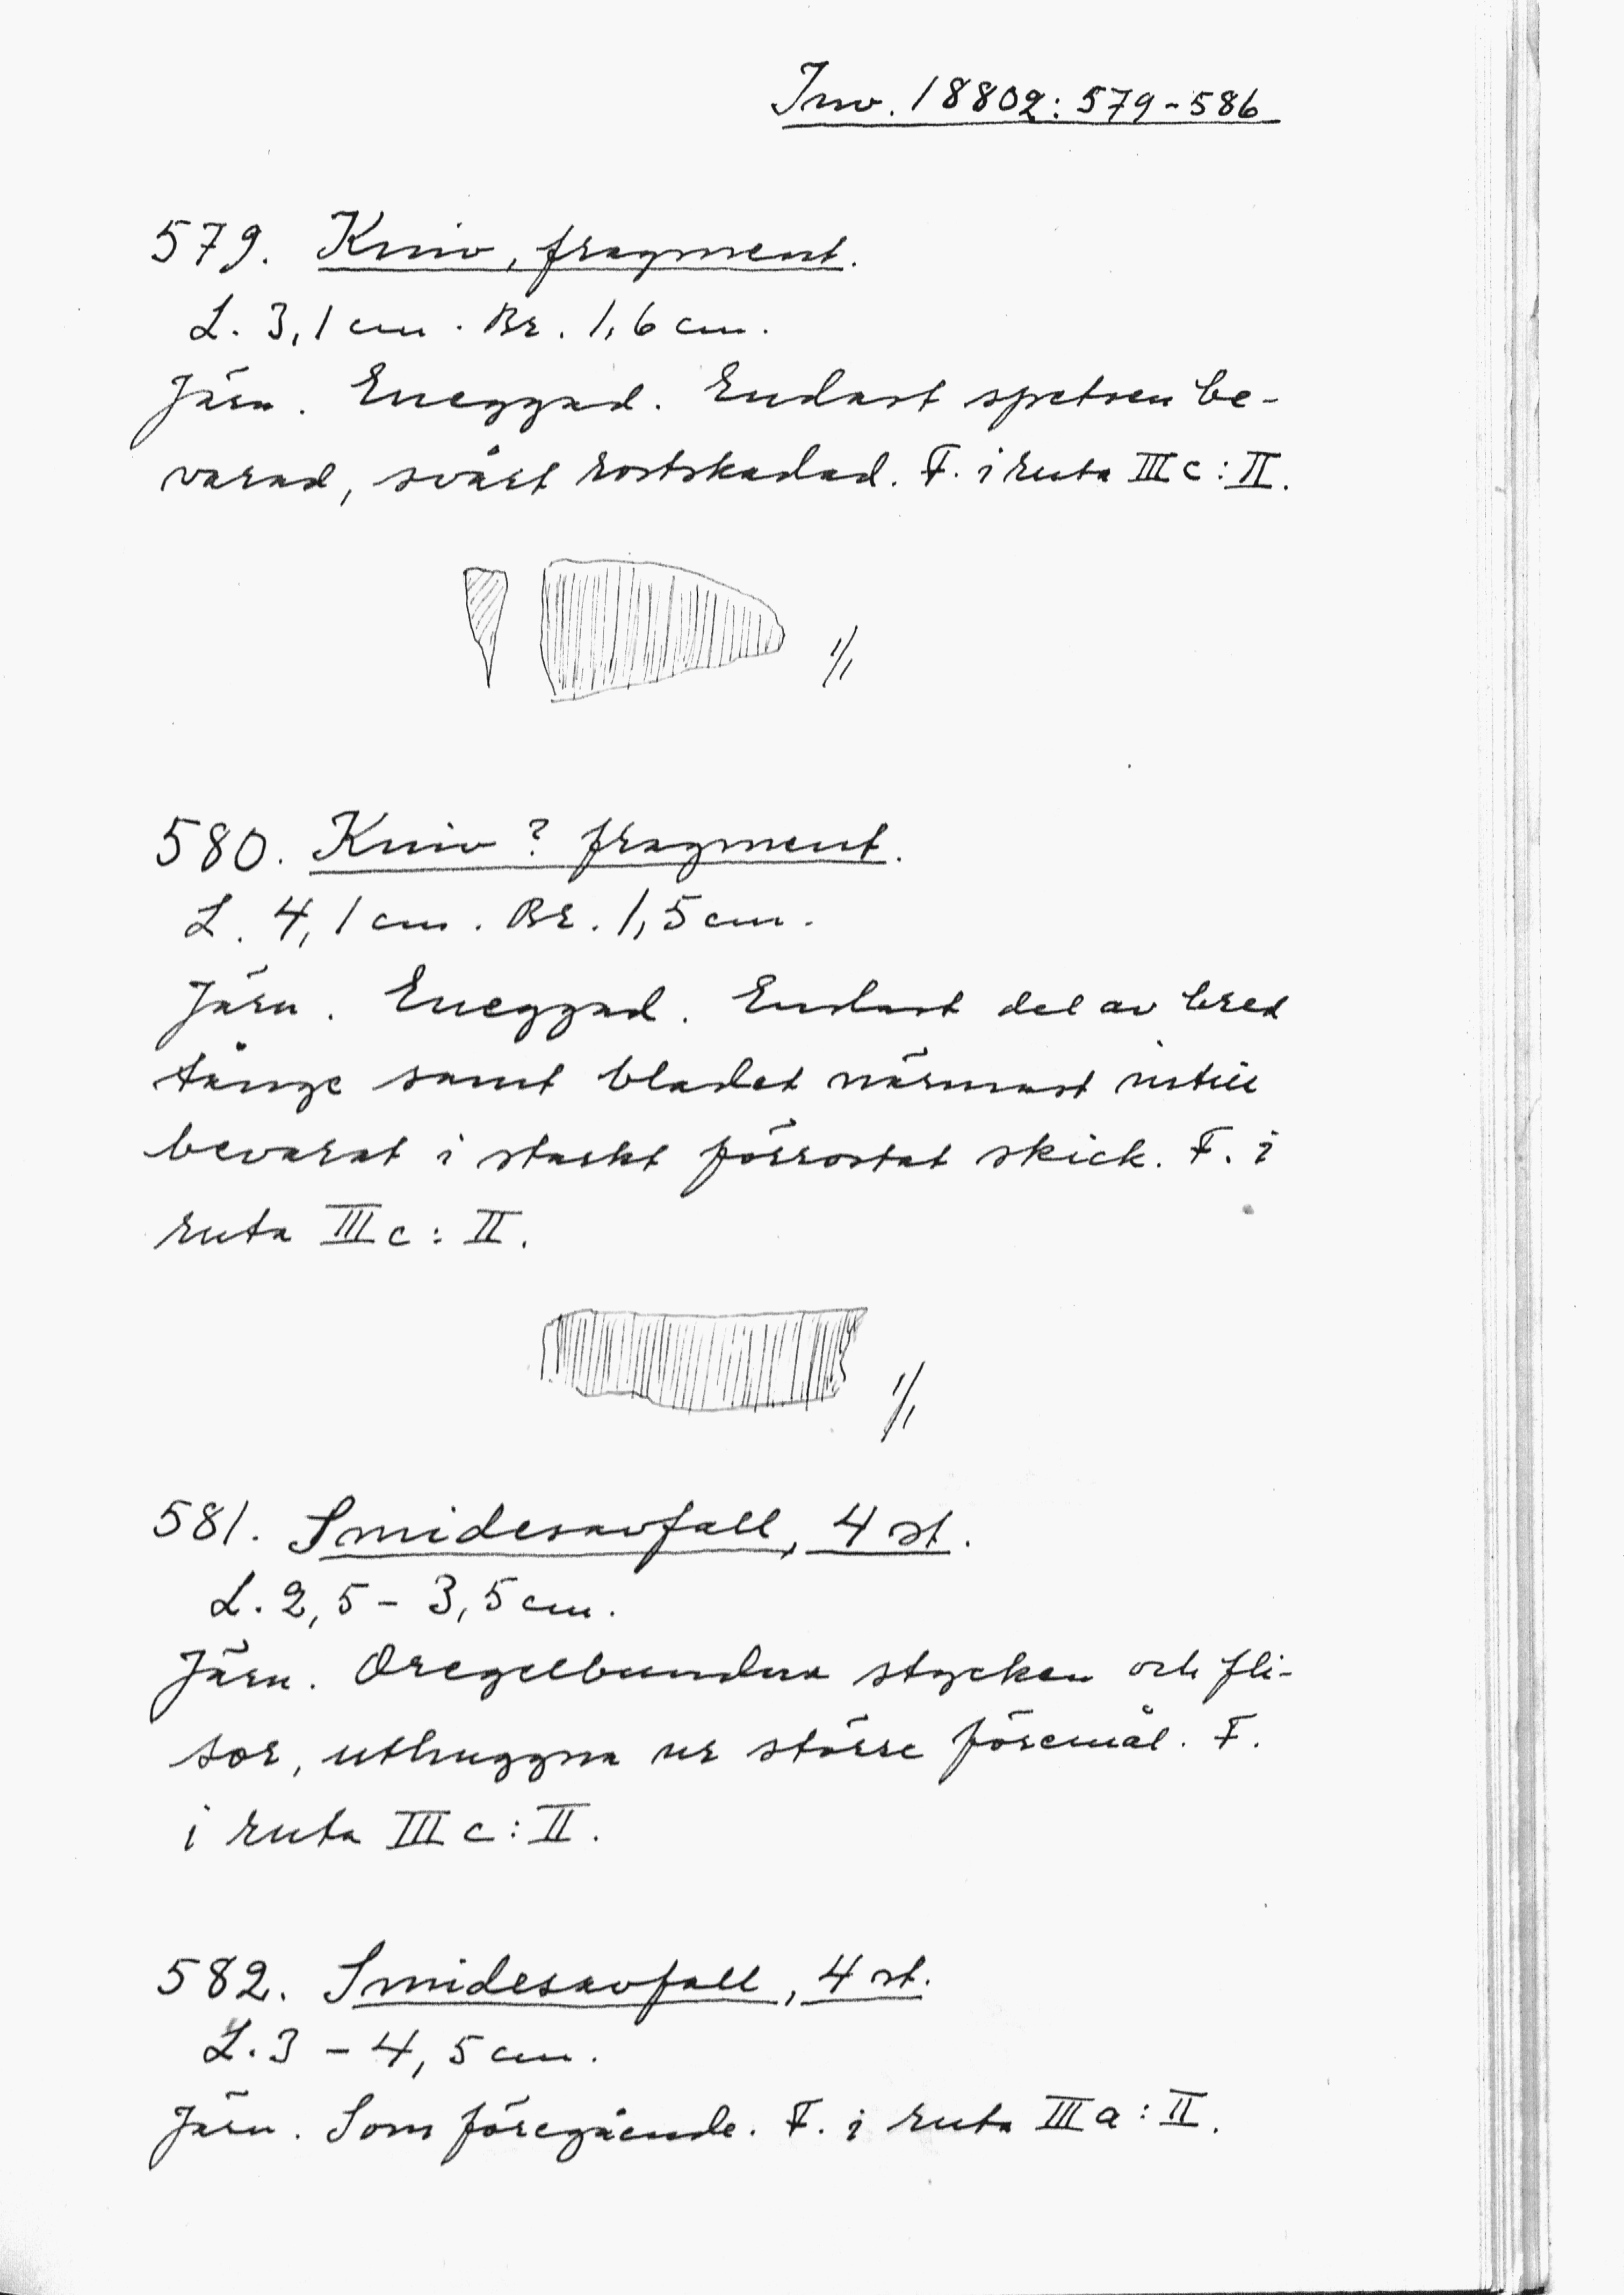 Inv. 18802: 579-586
579. Kniv, fragment.
L. 3,1 cm. Br. 1,6 cm.
Järn. Eneggad. Endast spetsen be-
varad, svårt rostskadad. F. i ruta III c: II.
1/1
580. Kniv? fragment.
L. 4,1 cm. Br. 1,5 cm.
Järn. Eneggad. Endast del av bred
tånge samt bladet närmast intill
bevarat i starkt förrostat skick. F. i
ruta III c: II.
1/1
581. Smidesavfall, 4 st.
L. 2,5 - 3,5 cm.
Järn. Oregelbundna stycken och fli-
sor, uthuggna ur större föremål. F.
i ruta III c: II.
582. Smidesavfall, 4 st.
L. 3 - 4,5 cm.
Järn. Som föregående. F. i ruta III a: II.